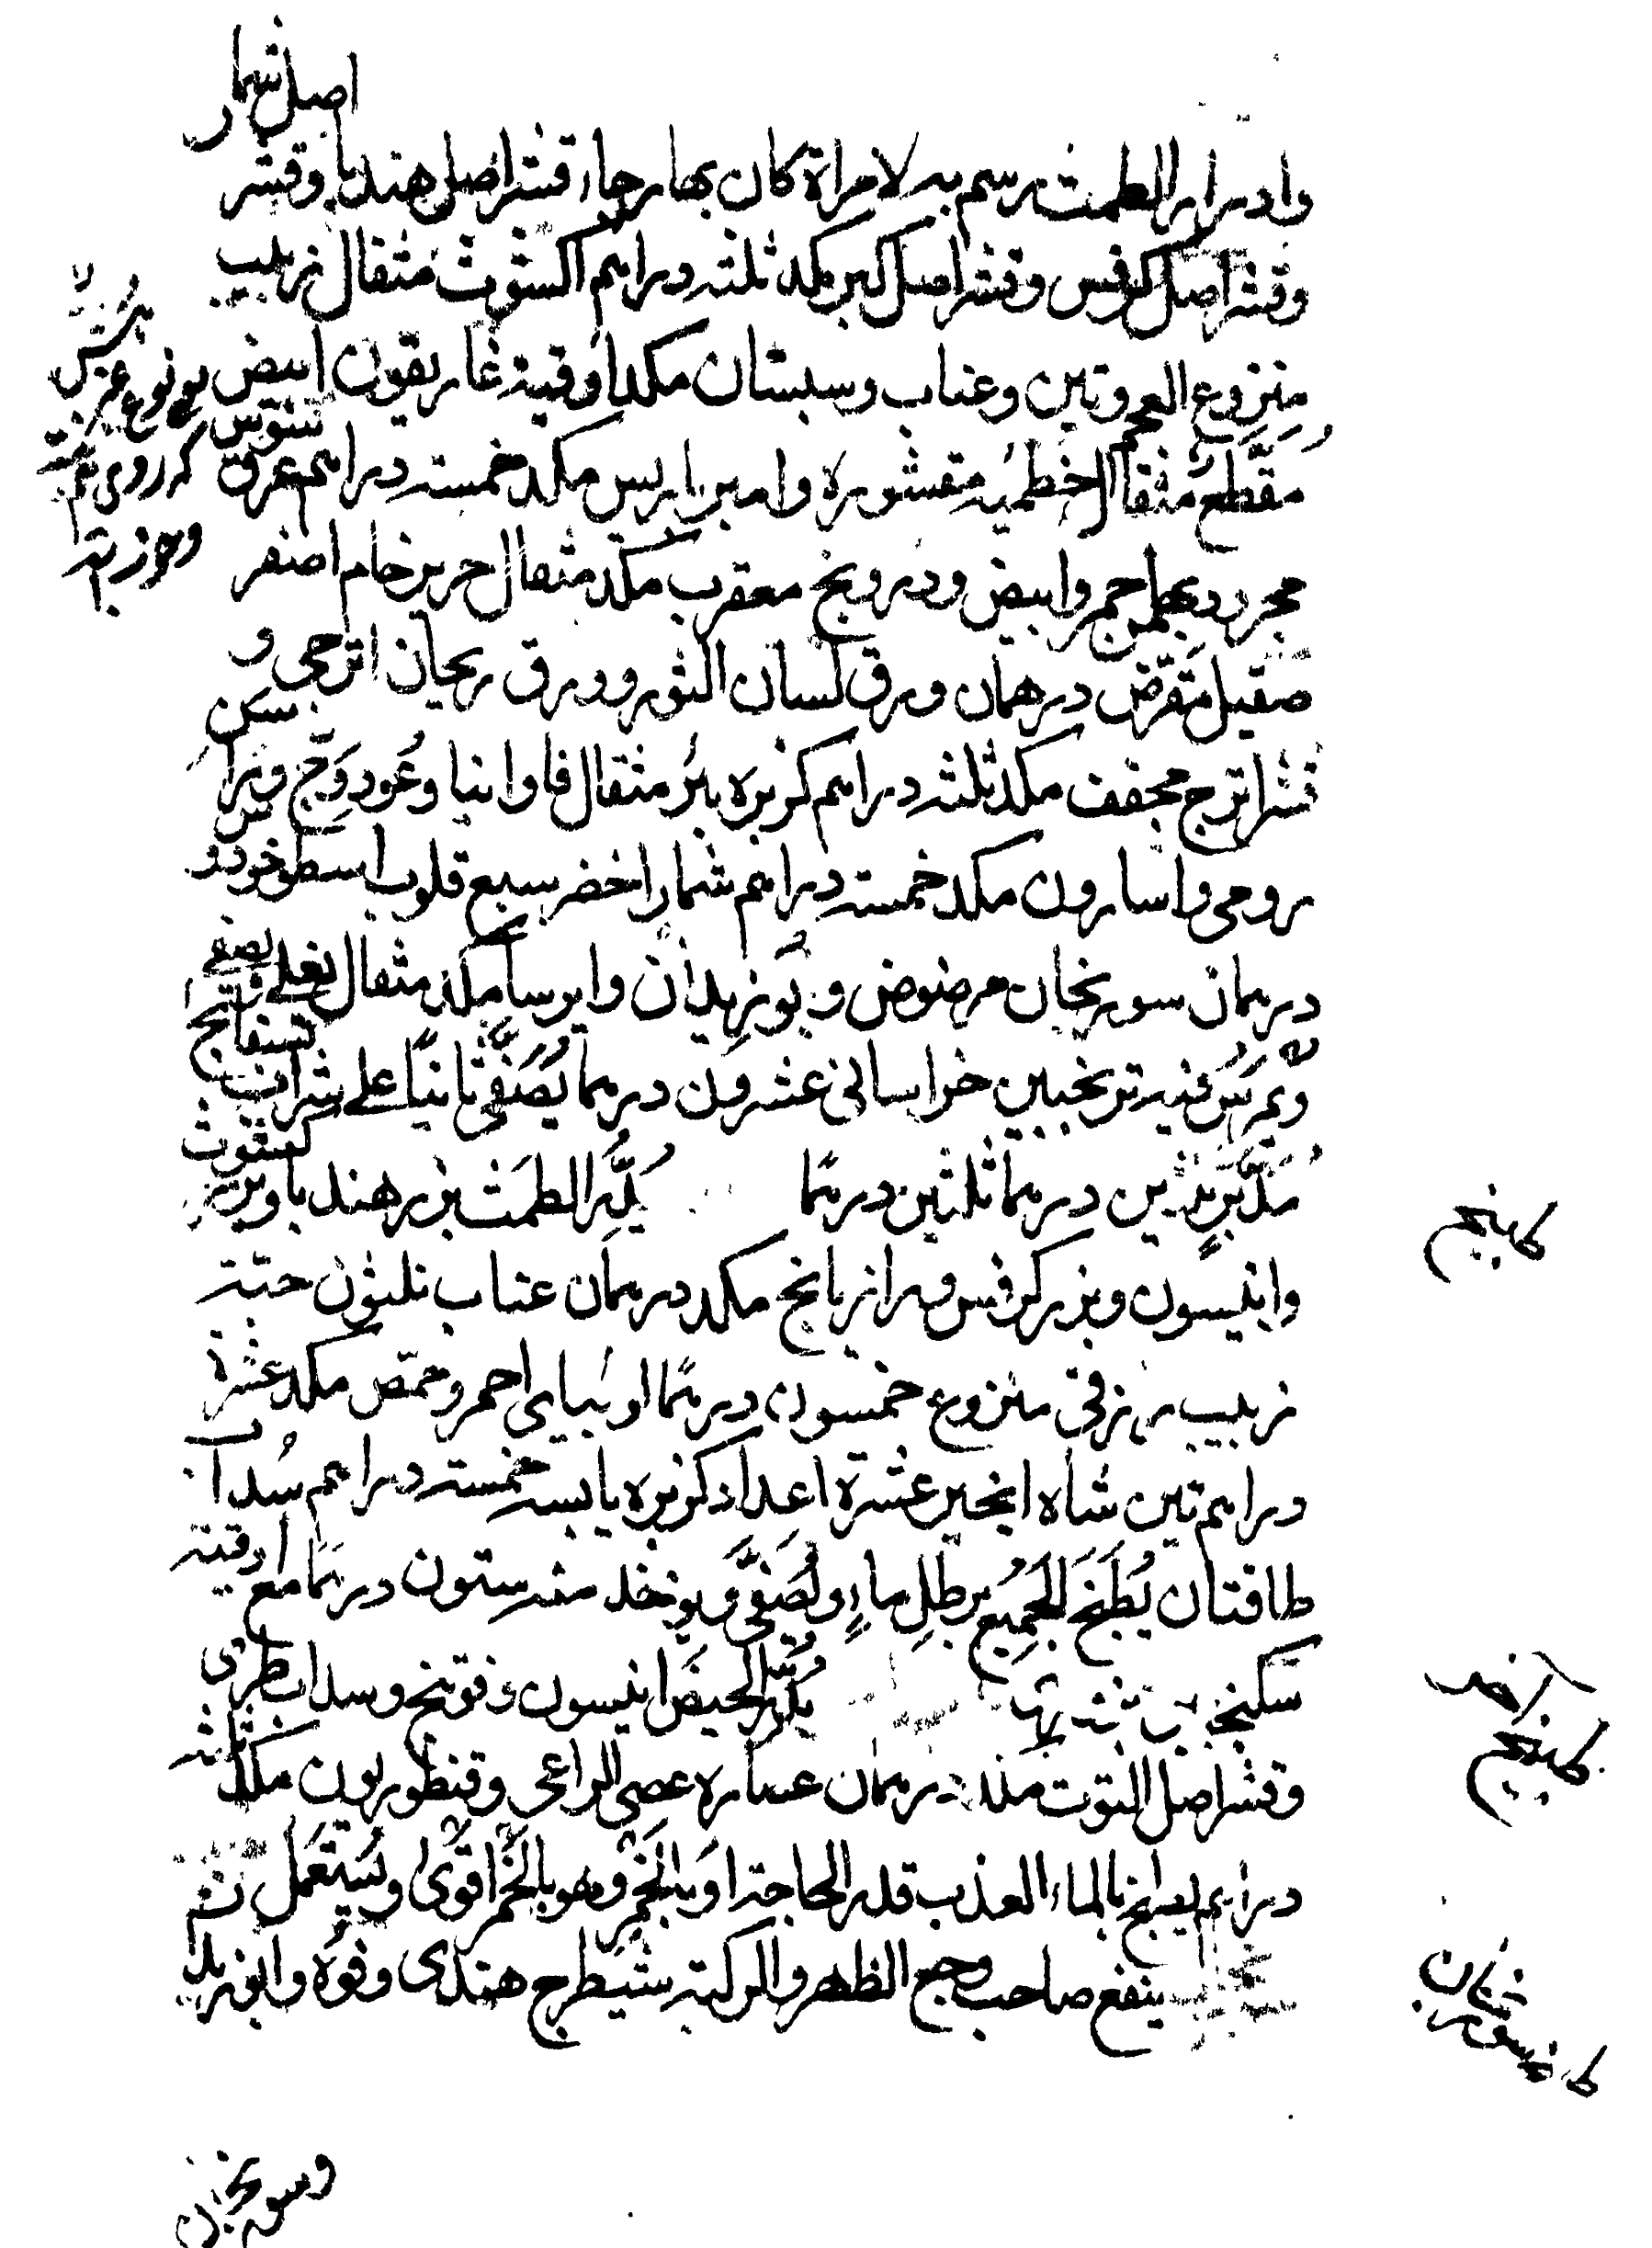 اصل شمار
وادرار الطمث رسم به لامراة كان بها رجاء قشر اصل هندبا وقشر
وقشر اصل كرفس وقشر اصل كبر مكد ثلثه دراهم اكشوث مثقال زبيب
منزوع العجم وتين وعناب وسبستان مكد اوقية غاريقون ابيض
مقطع مثقال خطمية مقشوره وامير باريس مكد خمسة دراهم عرق سوس
مجرود وبهمن احمر وابيض ودرونج معقرب مكد مثقال حرير خام اصفر
صقيل مقرض درهمان ورق لسان الثور وورق ريحان اترجي و
قشر اترج مجفف مكد ثلثه دراهم كزبره بئر مثقال فاوانيا وعود وج
رومي واسارون مكد خمسة دراهم شمار اخضر سبع قلوب اسطوخودوس
درهمان سورنجان مرضوض وبوزيدان وايرسا مكد مثقال يغلي ويصفى
ويمرس فيه ترنجبين خراساني عشرون درهما يصفى ثانيا على شراب
درهما ثلثين درهما يدر الطمث بزر هندبا وبزر كشوث
وانيسون وبزر كرفس ورازيانج مكد درهمان عناب ثلثون حبة
زبيب رازقي منزوع خمسون درهما لوبياي احمر وحمص مكد عشرة
دراهم تين شاه انجير عشرة اعداد كزبره يابسه خمسة دراهم سداب
طاقتان يطبخ الجميع برطل ماء ويصفى ويوخذ منه ستون درهما مع اوقية
يدر الحيض انيسون وفوتنج وسداب طري
وقشر اصل التوت مكد درهمان عصاره عصى الراعي وقنطوريون مكد ثلثة
دراهم يطبخ بالماء العذب قدر الحاجة او بالخمر وهو بالخمر اقوى ويستعمل
ينفع صاحب وجع الظهر والركبة شيطرج هندي وفوه وابوزيدان
وسورنجان